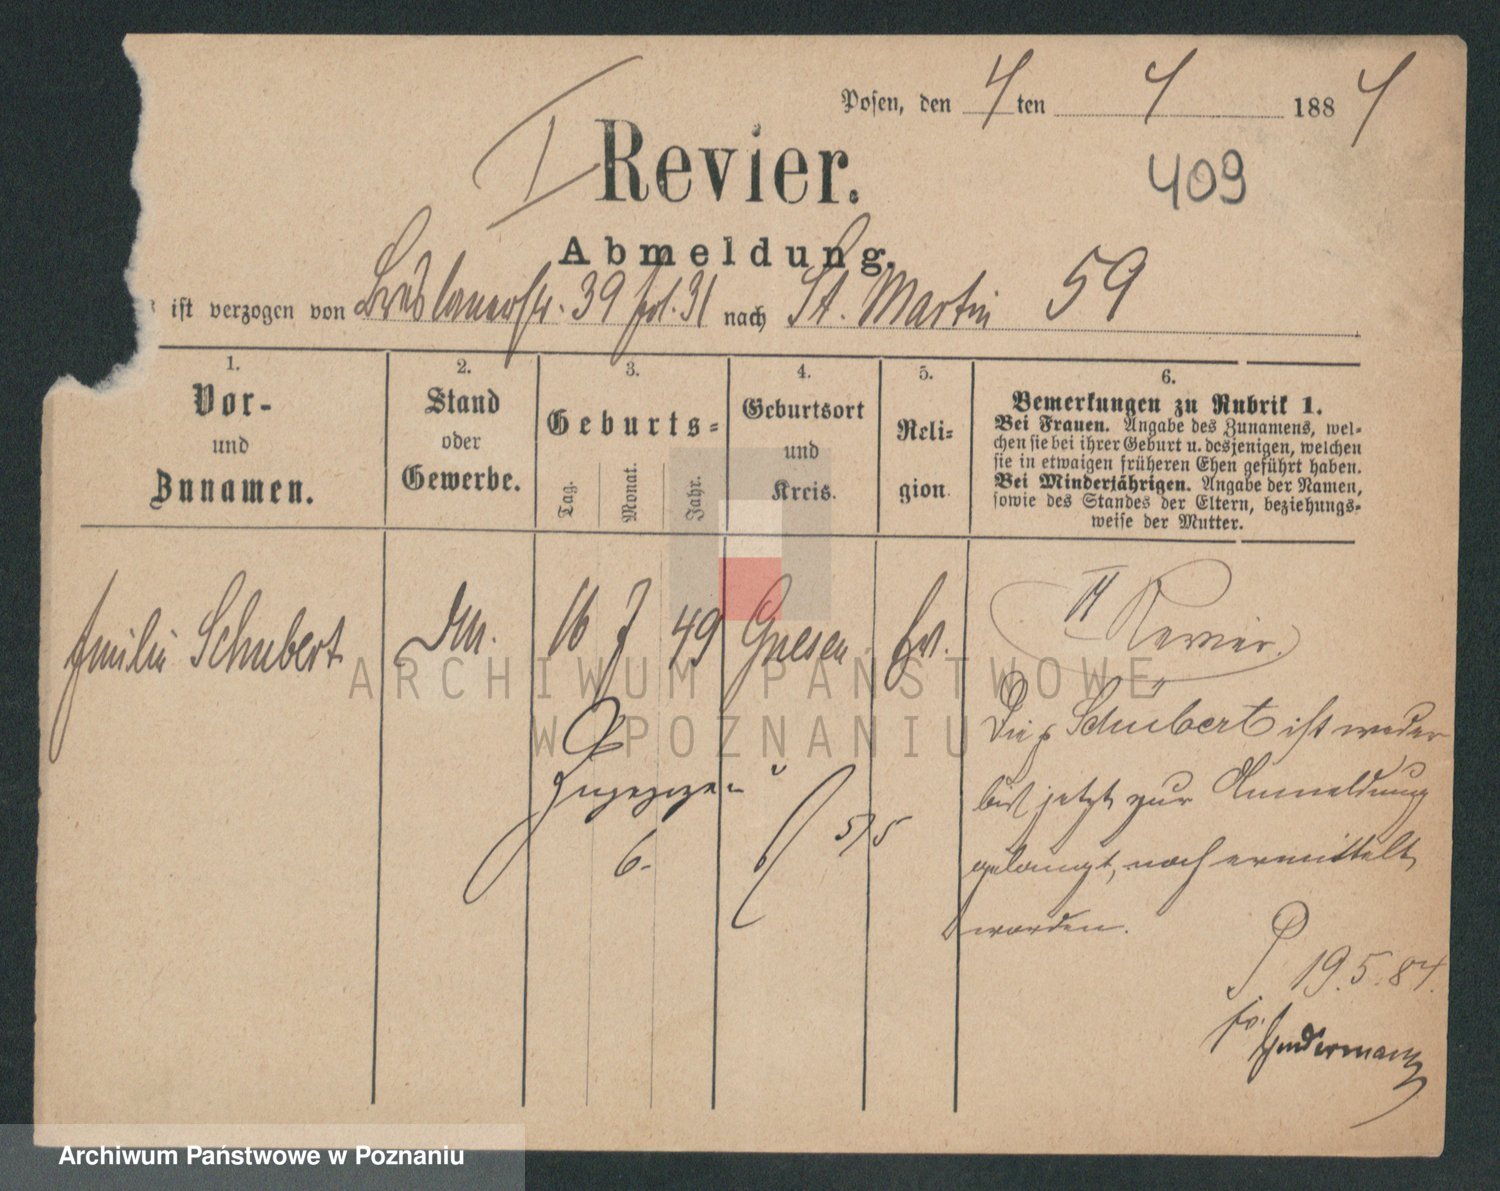 Posen, den 4 ten 4 1884
I Revier.
409
Abmeldung.
ist verzogen von Breslauerstr. 39 pol. 31 nach St. Martin 59
1.
Vor-
und
Zunamen.
2.
Stand
oder
Gewerbe.
3.
Geburts-
Tag.
Monat.
Jahr.
4.
Geburtsort
und
Kreis.
5.
Reli-
gion.
6.
Bemerkungen zu Rubrik 1.
Bei Frauen. Angabe des Zunamens, wel-
chen sie bei ihrer Geburt u. desjenigen, welchen
sie in etwaigen früheren Ehen geführt haben.
Bei Minderjährigen. Angabe der Namen,
sowie des Standes der Eltern, beziehungs-
weise der Mutter.
Emilie Schubert
16 7 49 Gnesen ev.
II Revier.
Die p Schubert ist weder
bis jetzt zur Anmeldung
gelangt, noch ermittelt
worden.
P 19.5.84.
Zugezogen
6.
5/5
ARCHIWUM PAŃSTWOWE
W POZNANIU
Archiwum Państwowe w Poznaniu